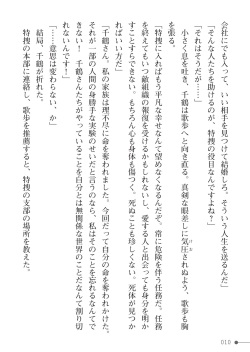 会社にでも入って、いい相手を見つけて結婚しろ。そういう人生を送るんだ」
「そんな人たちを助けるのが、特捜の役目なんですよね？」
「それはそうだが……」
　小さく息を吐き、千鶴は歌歩へと向き直る。真剣な眼差しに気圧されぬよう、歌歩も胸
を張る。
「特捜に入ればもう平凡な幸せなんて望めなくなるんだぞ。常に危険を伴う任務だ。任務
を終えてもいつ敵組織の報復を受けるかもしれないし、愛する人と出会っても身分を明か
すことすらできない。もちろん心も身体も傷つく。死ぬことも珍しくない。死体が見つか
ればいい方だ」
「千鶴さん、私の家族は理不尽に命を奪われました。今回だって自分の命を奪われかけた。
それが一部の人間の身勝手な実験のせいだと言うのなら、私はそのことを忘れるなんてで
きない！　千鶴さんたちがやっていることを自分とは無関係な世界のことだなんて割り切
れないんです！」
「……意思は変わらない、か」
　結局、千鶴が折れた。
　特捜の本部に連絡し、歌歩を推薦すると、特捜の支部の場所を教えた。
010